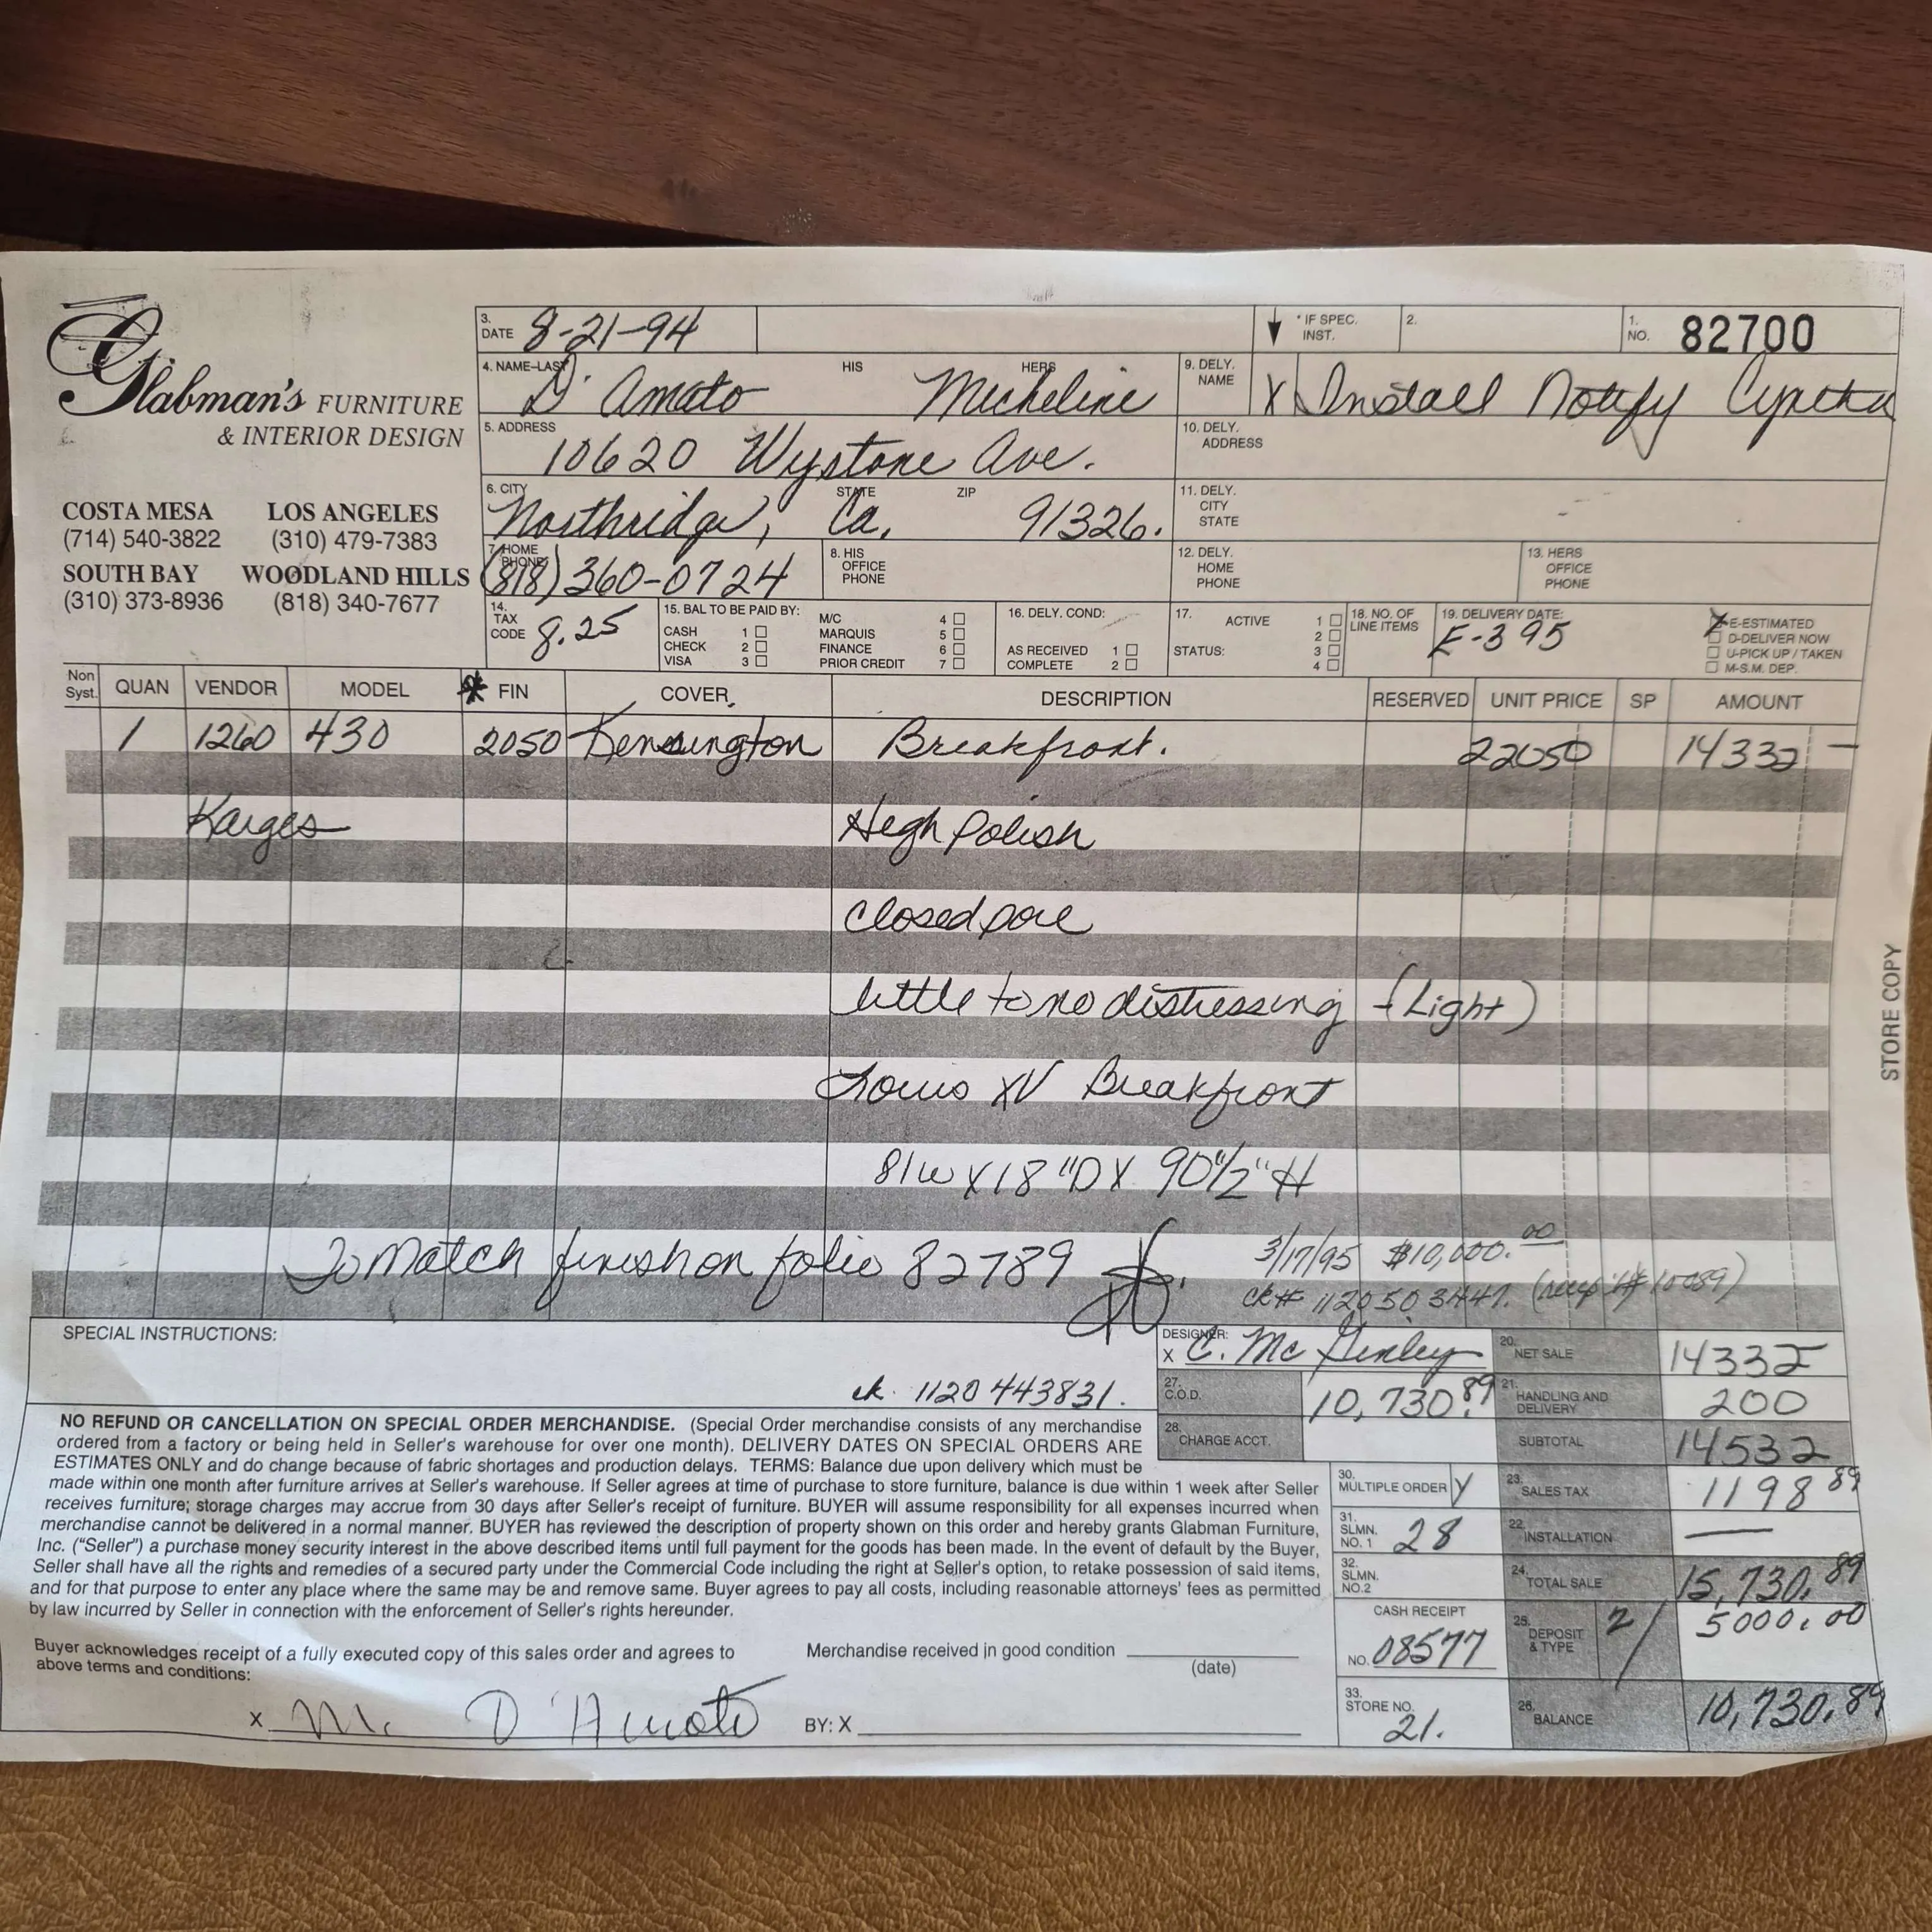 Glabman's FURNITURE
& INTERIOR DESIGN
COSTA MESA LOS ANGELES
(714) 540-3822 (310) 479-7383
SOUTH BAY WOODLAND HILLS
(310) 373-8936 (818) 340-7677
3. DATE 8-21-94
* IF SPEC. INST.
2.
1. NO. 82700
4. NAME-LAST D'Amato HIS HERS Micheline
9. DELY. NAME X Install Notify
5. ADDRESS 10620 Wystone Ave.
10. DELY. ADDRESS
6. CITY Northridge, STATE Ca, ZIP 91326.
11. DELY. CITY STATE
7. HOME PHONE (818) 360-0724
8. HIS OFFICE PHONE
12. DELY. HOME PHONE
13. HERS OFFICE PHONE
14. TAX CODE 8.25
15. BAL TO BE PAID BY:
CASH 1
CHECK 2
VISA 3
M/C 4
MARQUIS 5
FINANCE 6
PRIOR CREDIT 7
16. DELY. COND:
AS RECEIVED 1
COMPLETE 2
17. STATUS: ACTIVE 1
2
3
4
18. NO. OF LINE ITEMS
19. DELIVERY DATE: E-3 95
X E-ESTIMATED
D-DELIVER NOW
U-PICK UP / TAKEN
M-S.M. DEP.
Non Syst. QUAN VENDOR MODEL * FIN COVER DESCRIPTION RESERVED UNIT PRICE SP AMOUNT
1 1260 430 2050 Kensington Breakfront. 22050 14332 —
Karges High Polish
Closed pore
little to no distressing - (Light)
Louis XV Breakfront
81w X 18"D X 90 1/2" H
To Match finish on folio 82789
3/17/95 $10,000.00
ck# 1120503447.
STORE COPY
SPECIAL INSTRUCTIONS:
ck. 1120443831.
DESIGNER: X C. McGinley
27. C.O.D. 10,730.89
28. CHARGE ACCT.
20. NET SALE 14332
21. HANDLING AND DELIVERY 200
SUBTOTAL 14532
23. SALES TAX 1198 89
22. INSTALLATION —
24. TOTAL SALE 15,730.89
25. DEPOSIT & TYPE 2/ 5000.00
26. BALANCE 10,730.89
30. MULTIPLE ORDER Y
31. SLMN. NO. 1 28
32. SLMN. NO.2
CASH RECEIPT
NO. 08577
33. STORE NO. 21.
NO REFUND OR CANCELLATION ON SPECIAL ORDER MERCHANDISE. (Special Order merchandise consists of any merchandise
ordered from a factory or being held in Seller's warehouse for over one month). DELIVERY DATES ON SPECIAL ORDERS ARE
ESTIMATES ONLY and do change because of fabric shortages and production delays. TERMS: Balance due upon delivery which must be
made within one month after furniture arrives at Seller's warehouse. If Seller agrees at time of purchase to store furniture, balance is due within 1 week after Seller
receives furniture; storage charges may accrue from 30 days after Seller's receipt of furniture. BUYER will assume responsibility for all expenses incurred when
merchandise cannot be delivered in a normal manner. BUYER has reviewed the description of property shown on this order and hereby grants Glabman Furniture,
Inc. ("Seller") a purchase money security interest in the above described items until full payment for the goods has been made. In the event of default by the Buyer,
Seller shall have all the rights and remedies of a secured party under the Commercial Code including the right at Seller's option, to retake possession of said items,
and for that purpose to enter any place where the same may be and remove same. Buyer agrees to pay all costs, including reasonable attorneys' fees as permitted
by law incurred by Seller in connection with the enforcement of Seller's rights hereunder.
Buyer acknowledges receipt of a fully executed copy of this sales order and agrees to
above terms and conditions:
Merchandise received in good condition
(date)
X M. D'Amato
BY: X